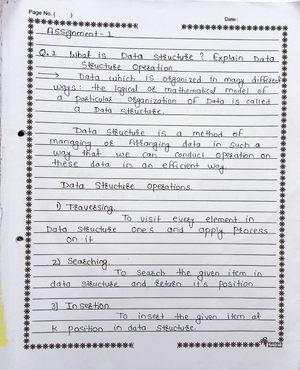 Page No. (      )
Date :
Assignment - 1
Q.1 What is Data structure ? Explain Data
Structure Operation
→ Data which is organized in many different
ways : the logical or mathematical model of
a particular organization of Data is called
a Data structure.
Data structure is a method of
managing or Arranging data in such a
way that we can conduct operation on
these data in an efficient way.
Data Structure Operations.
1) Traversing.
To visit every element in
Data structure one's and apply process
on it.
2) Searching.
To search the given item in
data structure and return it's position.
3) Insertion
To insert the given item at
k position in data structure.